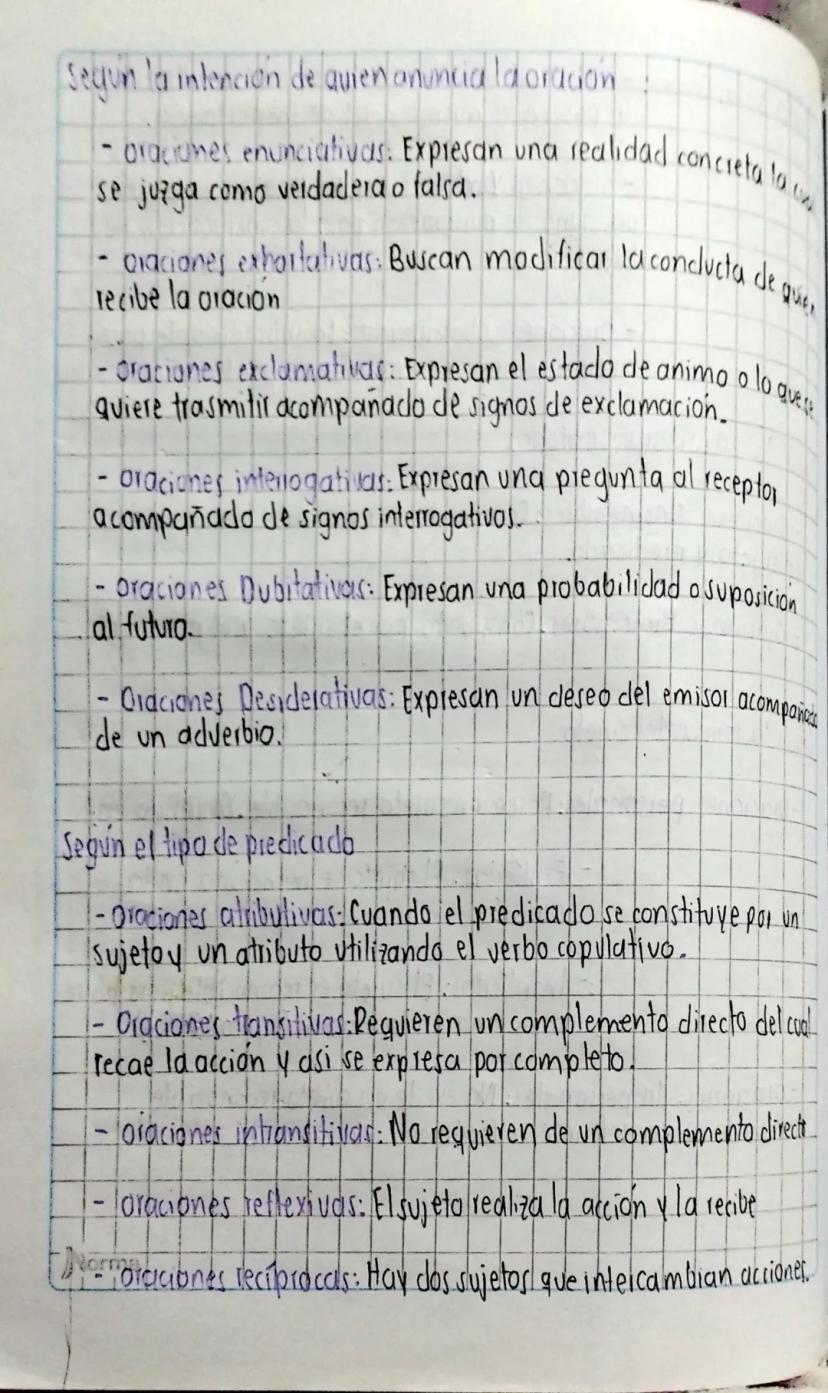 Según la intención de quien anuncia la oración :
- oraciones enunciativas: Expresan una realidad concreta la
se juzga como verdadera o falsa.
- oraciones exhortativas: Buscan modificar la conducta de quien
recibe la oración
- oraciones exclamativas: Expresan el estado de animo o lo que se
quiere trasmitir acompañado de signos de exclamación.
- oraciones interrogativas: Expresan una pregunta al receptor
acompañada de signos interrogativos.
- oraciones Dubitativas: Expresan una probabilidad o suposición
al futuro.
- Oraciones Desiderativas: Expresan un deseo del emisor acompañado
de un adverbio.
Según el tipo de predicado
- Oraciones atributivas: Cuando el predicado se constituye por un
sujeto y un atributo utilizando el verbo copulativo.
- Oraciones transitivas: Requieren un complemento directo del cual
recae la acción y asi se expresa por completo.
- oraciones intransitivas: No requieren de un complemento direct
- oraciones reflexivas: El sujeto realiza la acción y la recibe
- oraciones recíprocas: Hay dos sujetos que intercambian acciones.
Norma